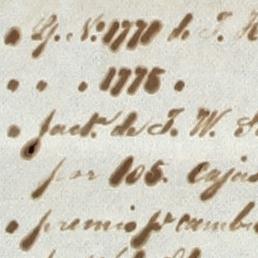 " G. N.º 1770 de J.
" " " 1775 "
" fact.ª de J. W.
por 105. Cajas
" premio pr cambio